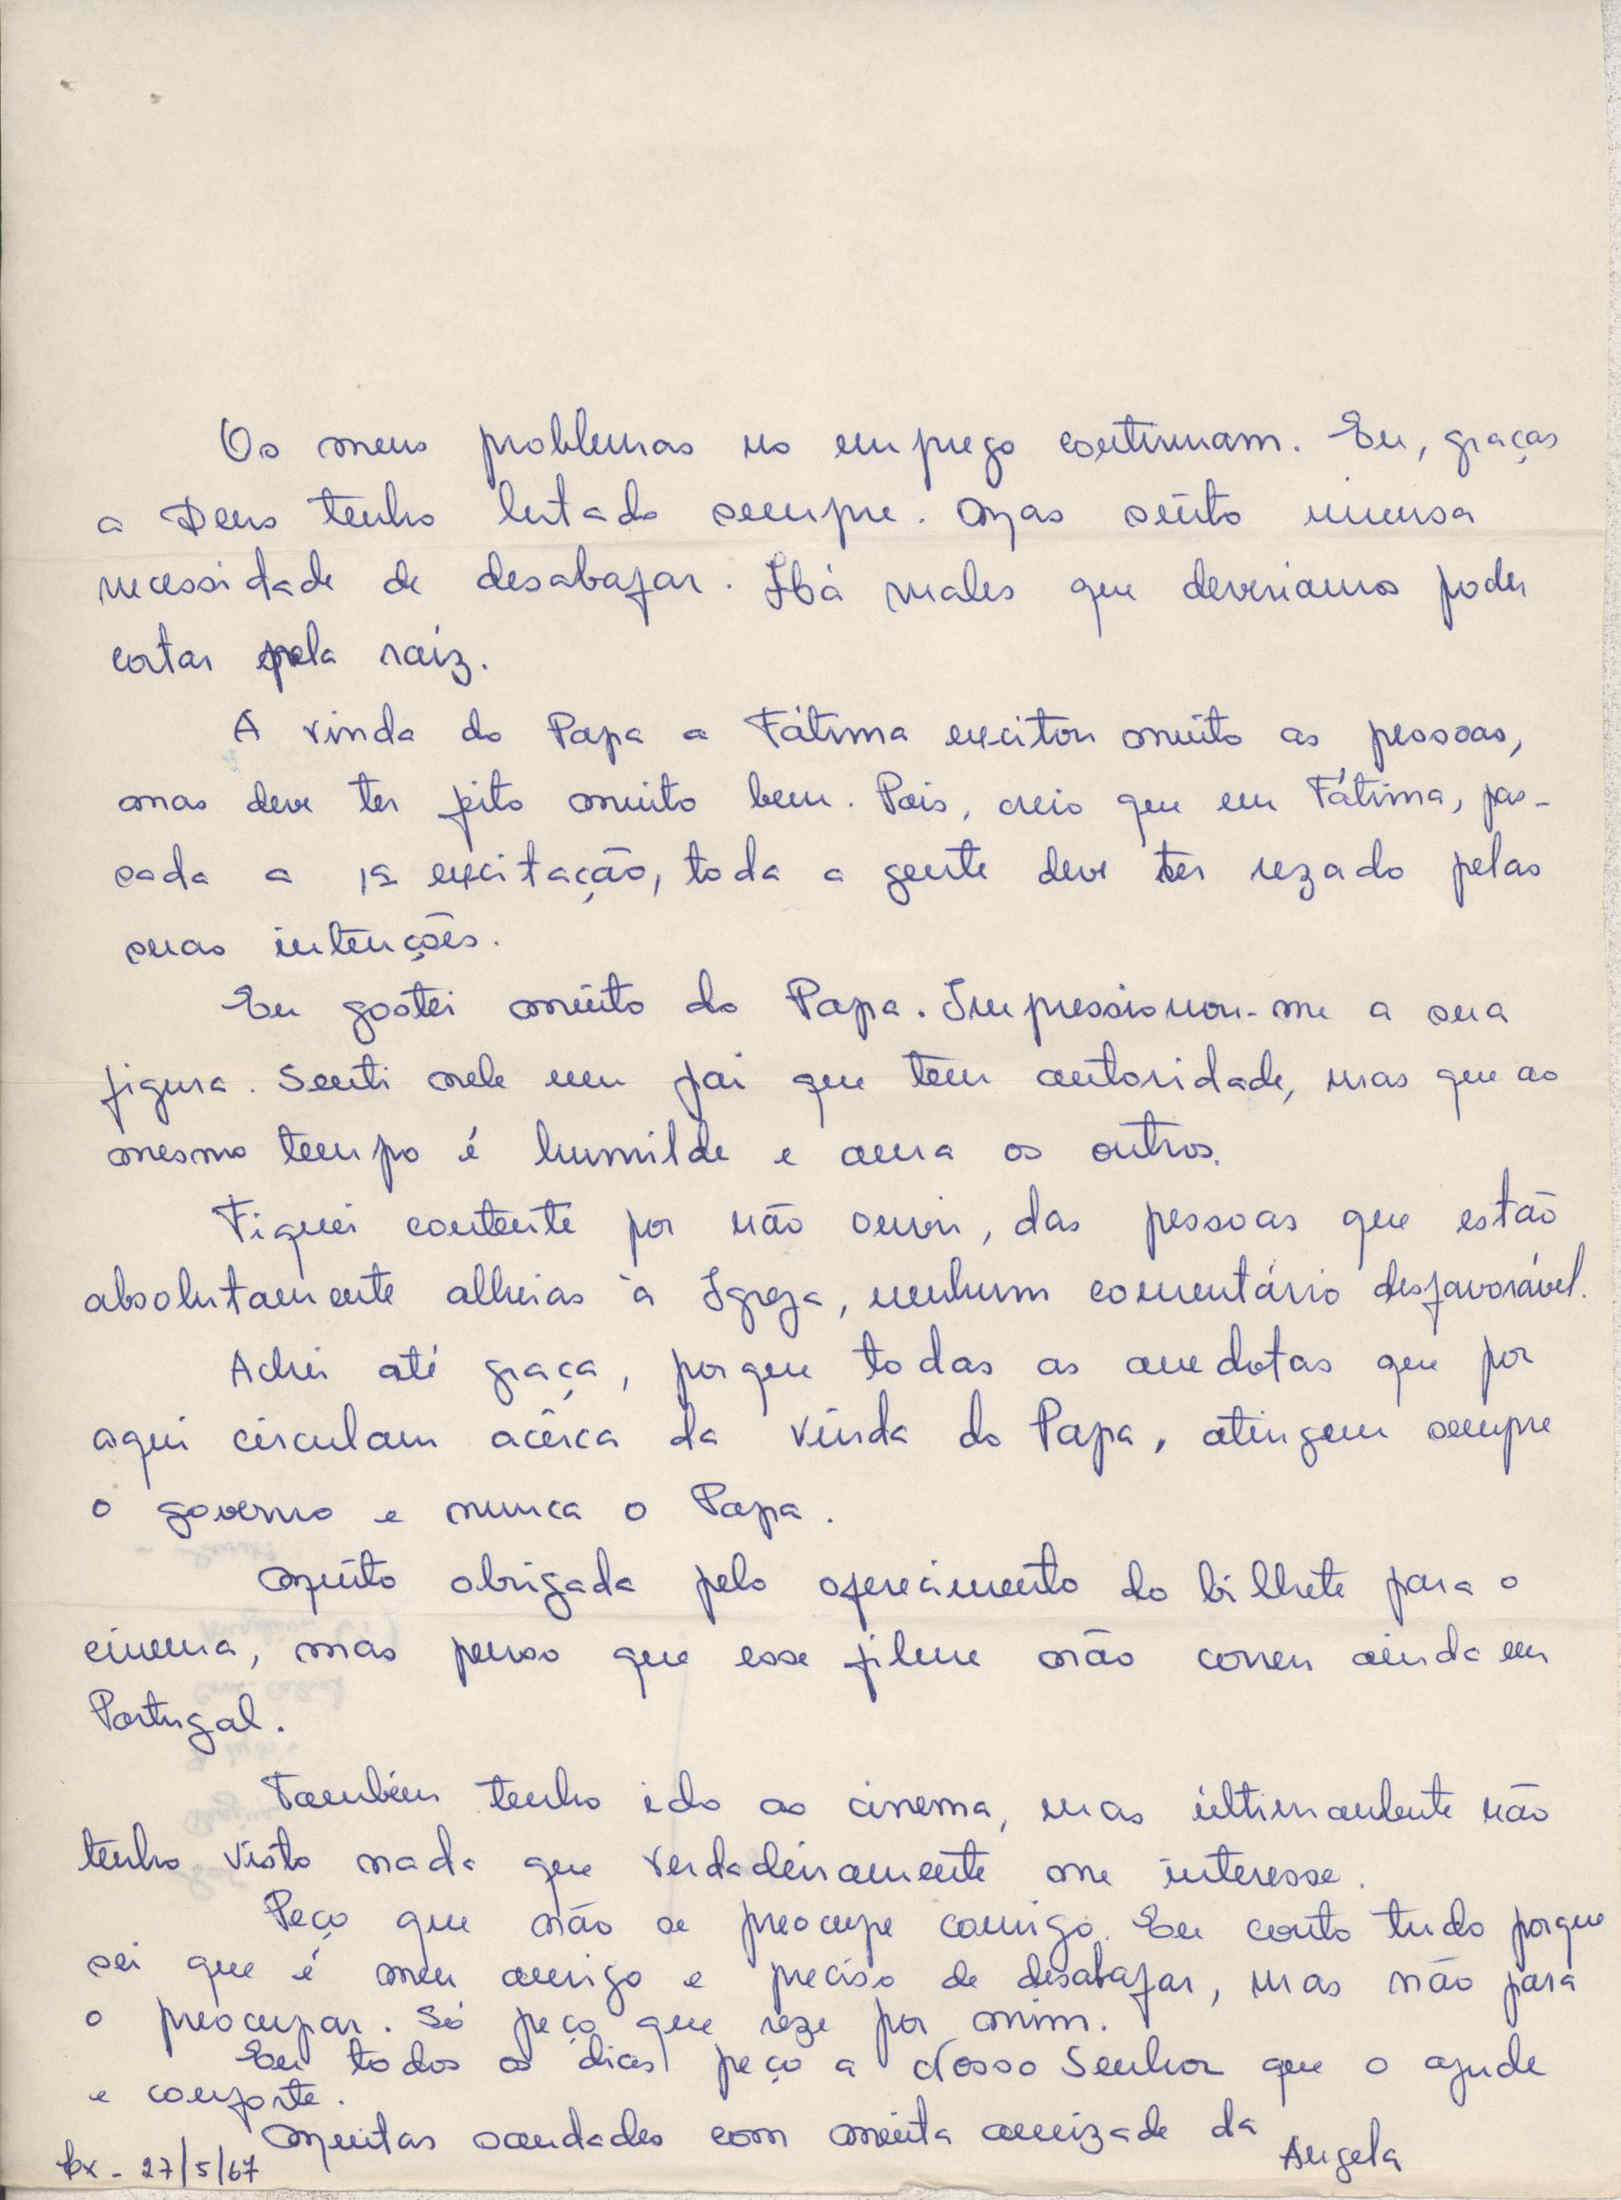 Os meus problemas no emprego continuam. Eu, graças
a Deus tenho lutado sempre. Mas sinto imensa
necessidade de desabafar. Há males que deveriamos poder
cortar pela raiz.
A vinda do Papa a Fátima excitou muito as pessoas,
mas deve ter feito muito bem. Pois, creio que em Fátima, pas-
sada a 1ª excitação, toda a gente deve ter rezado pelas
suas intenções.
Eu gostei muito do Papa. Impressionou-me a sua
figura. Senti nele um pai que tem autoridade, mas que ao
mesmo tempo é humilde e ama os outros.
Fiquei contente por não ouvir, das pessoas que estão
absolutamente alheias à Igreja, nenhum comentário desfavorável.
Achei até graça, porque todas as anedotas que por
aqui circulam acêrca da vinda do Papa, atingem sempre
o governo e nunca o Papa.
Muito obrigada pelo oferecimento do bilhete para o
cinema, mas penso que esse filme não correu ainda em
Portugal.
Também tenho ido ao cinema, mas ultimamente não
tenho visto nada que verdadeiramente me interesse.
Peço que não se preocupe comigo. Eu conto tudo porque
sei que é meu amigo e preciso de desabafar, mas não para
o preocupar. Só peço que reze por mim.
Eu todos os dias peço a Nosso Senhor que o ajude
e conforte.
Muitas saudades com muita amizade da
Angela
Lx - 27/5/67